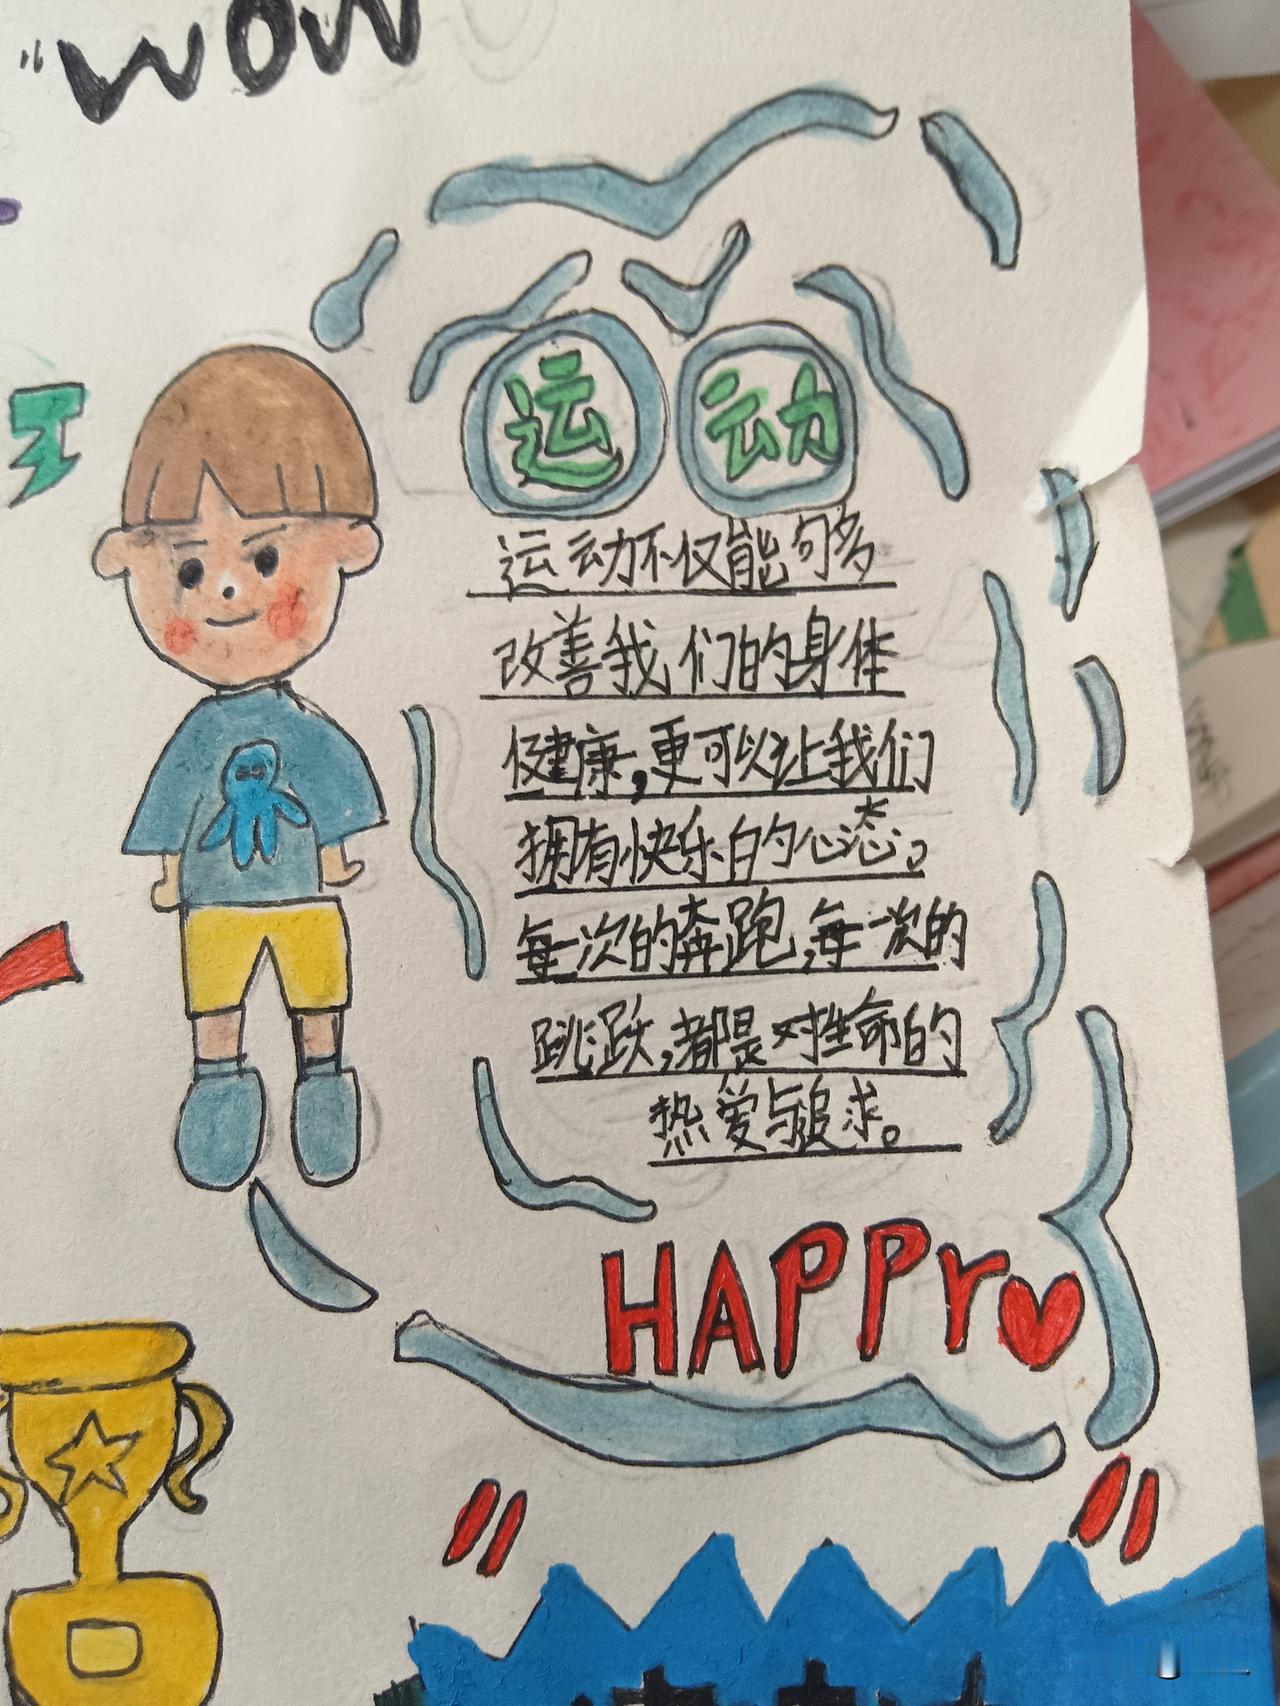 "WOW
运动
运动不仅能够
改善我们的身体
健康,更可以让我们
拥有快乐的心态。
每一次的奔跑,每一次的
跳跃,都是对生命的
热爱与追求。
HAPPY